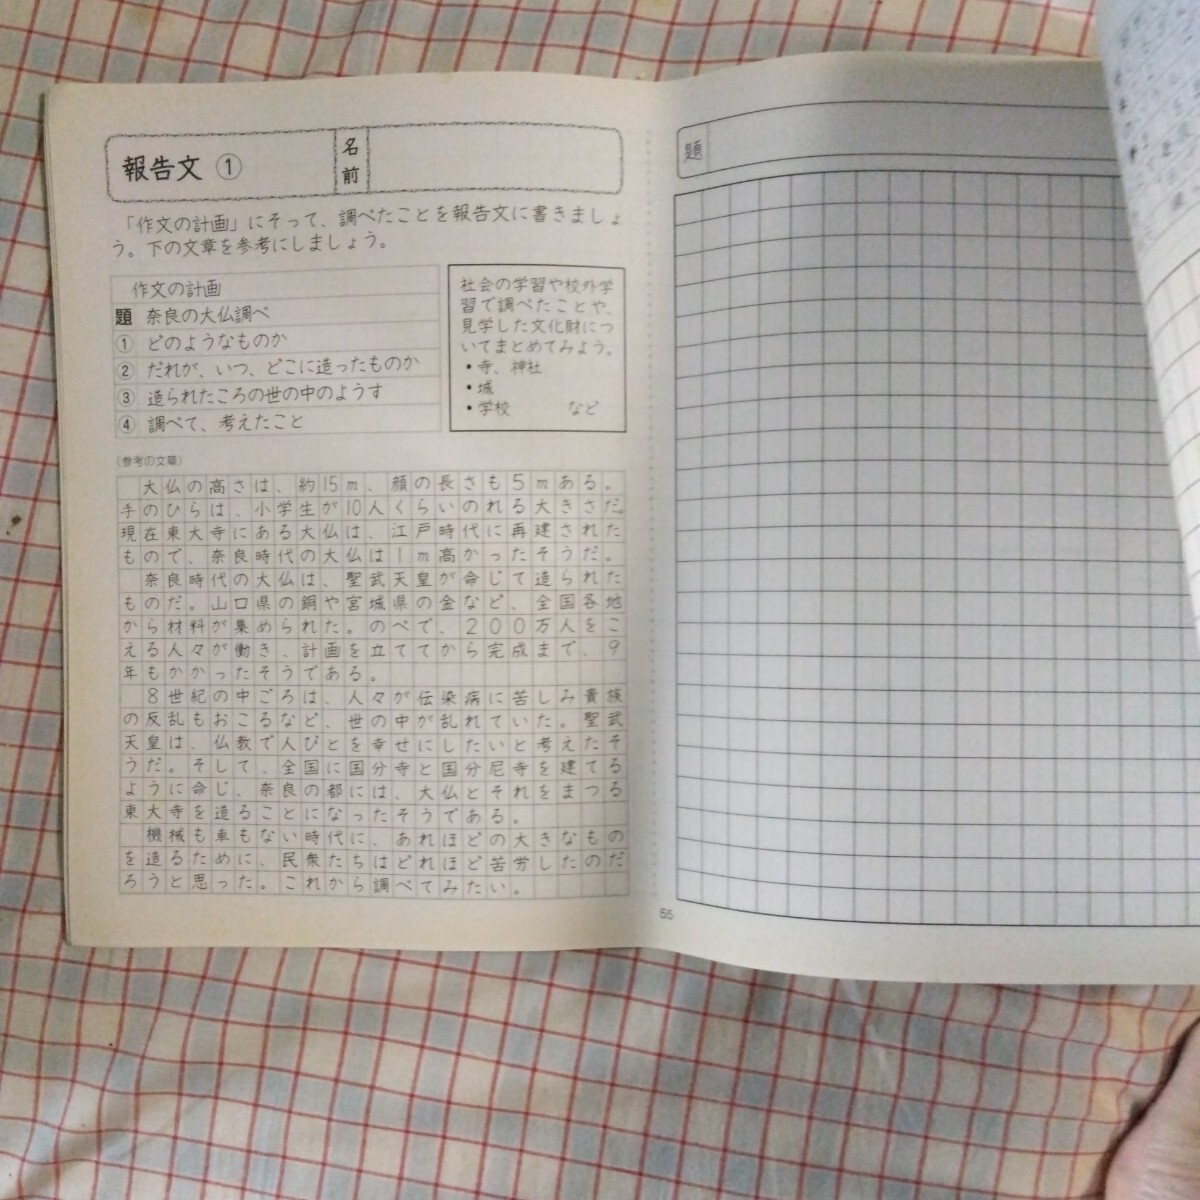 報告文 ①
名前
「作文の計画」にそって、調べたことを報告文に書きましょ
う。下の文章を参考にしましょう。
作文の計画
題 奈良の大仏調べ
① どのようなものか
② だれが、いつ、どこに造ったものか
③ 造られたころの世の中のようす
④ 調べて、考えたこと
社会の学習や校外学
習で調べたことや、
見学した文化財につ
いてまとめてみよう。
・寺、神社
・城
・学校 など
(参考の文章)
大仏の高さは、約15m、顔の長さも5mある。
手のひらは、小学生が10人くらいのれる大きさだ。
現在東大寺にある大仏は、江戸時代に再建された
もので、奈良時代の大仏は1m高かったそうだ。
奈良時代の大仏は、聖武天皇が命じて造られた
ものだ。山口県の銅や宮城県の金など、全国各地
から材料が集められた。のべで、200万人をこ
える人々が働き、計画を立ててから完成まで、9
年もかかったそうである。
8世紀の中ごろは、人々が伝染病に苦しみ貴族
の反乱もおこるなど、世の中が乱れていた。聖武
天皇は、仏教で人びとを幸せにしたいと考えたそ
うだ。そして、全国に国分寺と国分尼寺を建てる
ように命じ、奈良の都には、大仏とそれをまつる
東大寺を造ることになったそうである。
機械も車もない時代に、あれほどの大きなもの
を造るために、民衆たちはどれほど苦労したのだ
ろうと思った。これから調べてみたい。
題
55